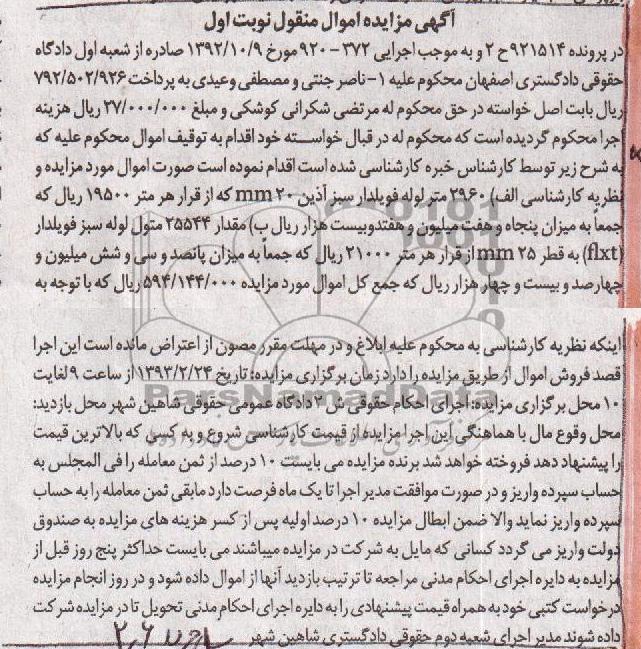 آگهی مزایده اموال منقول نوبت اول
در پرونده ۹۲۱۵۱۴ ح ۲ و به موجب اجرایی ۳۷۲ - ۹۲۰ مورخ ۱۳۹۲/۱۰/۹ صادره از شعبه اول دادگاه
حقوقی دادگستری اصفهان محکوم علیه ۱- ناصر جنتی و مصطفی وعیدی به پرداخت ۷۹۲/۵۰۲/۹۲۶
ریال بابت اصل خواسته در حق محکوم له مرتضی شکرانی کوشکی و مبلغ ۲۷/۰۰۰/۰۰۰ ریال هزینه
اجرا محکوم گردیده است که محکوم له در قبال خواسته خود اقدام به توقیف اموال محکوم علیه که
به شرح زیر توسط کارشناس خبره کارشناسی شده است اقدام نموده است صورت اموال مورد مزایده و
نظریه کارشناسی الف) ۲۹۶۰ متر لوله فویلدار سبز آذین ۲۰ mm که از قرار هر متر ۱۹۵۰۰ ریال که
جمعاً به میزان پنجاه و هفت میلیون و هفتدوبیست هزار ریال ب) مقدار ۲۵۵۴۴ متول لوله سبز فویلدار
(flxt) به قطر ۲۵ mm از قرار هر متر ۲۱۰۰۰ ریال که جمعاً به میزان پانصد و سی و شش میلیون و
چهارصد و بیست و چهار هزار ریال که جمع کل اموال مورد مزایده ۵۹۴/۱۴۴/۰۰۰ ریال که با توجه به
اینکه نظریه کارشناسی به محکوم علیه ابلاغ و در مهلت مقرر مصون از اعتراض مانده است این اجرا
قصد فروش اموال از طریق مزایده را دارد زمان برگزاری مزایده: تاریخ ۱۳۹۳/۲/۲۴ از ساعت ۹ لغایت
۱۰ محل برگزاری مزایده: اجرای احکام حقوقی ش ۲ دادگاه عمومی حقوقی شاهین شهر محل بازدید:
محل وقوع مال با هماهنگی این اجرا مزایده از قیمت کارشناسی شروع و به کسی که بالاترین قیمت
را پیشنهاد دهد فروخته خواهد شد برنده مزایده می بایست ۱۰ درصد از ثمن معامله را فی المجلس به
حساب سپرده واریز و در صورت موافقت مدیر اجرا تا یک ماه فرصت دارد مابقی ثمن معامله را به حساب
سپرده واریز نماید والا ضمن ابطال مزایده ۱۰ درصد اولیه پس از کسر هزینه های مزایده به صندوق
دولت واریز می گردد کسانی که مایل به شرکت در مزایده میباشند می بایست حداکثر پنج روز قبل از
مزایده به دایره اجرای احکام مدنی مراجعه تا ترتیب بازدید آنها از اموال داده شود و در روز انجام مزایده
درخواست کتبی خود به همراه قیمت پیشنهادی را به دایره اجرای احکام مدنی تحویل تا در مزایده شرکت
داده شوند مدیر اجرای شعبه دوم حقوقی دادگستری شاهین شهر
ParsNamadData